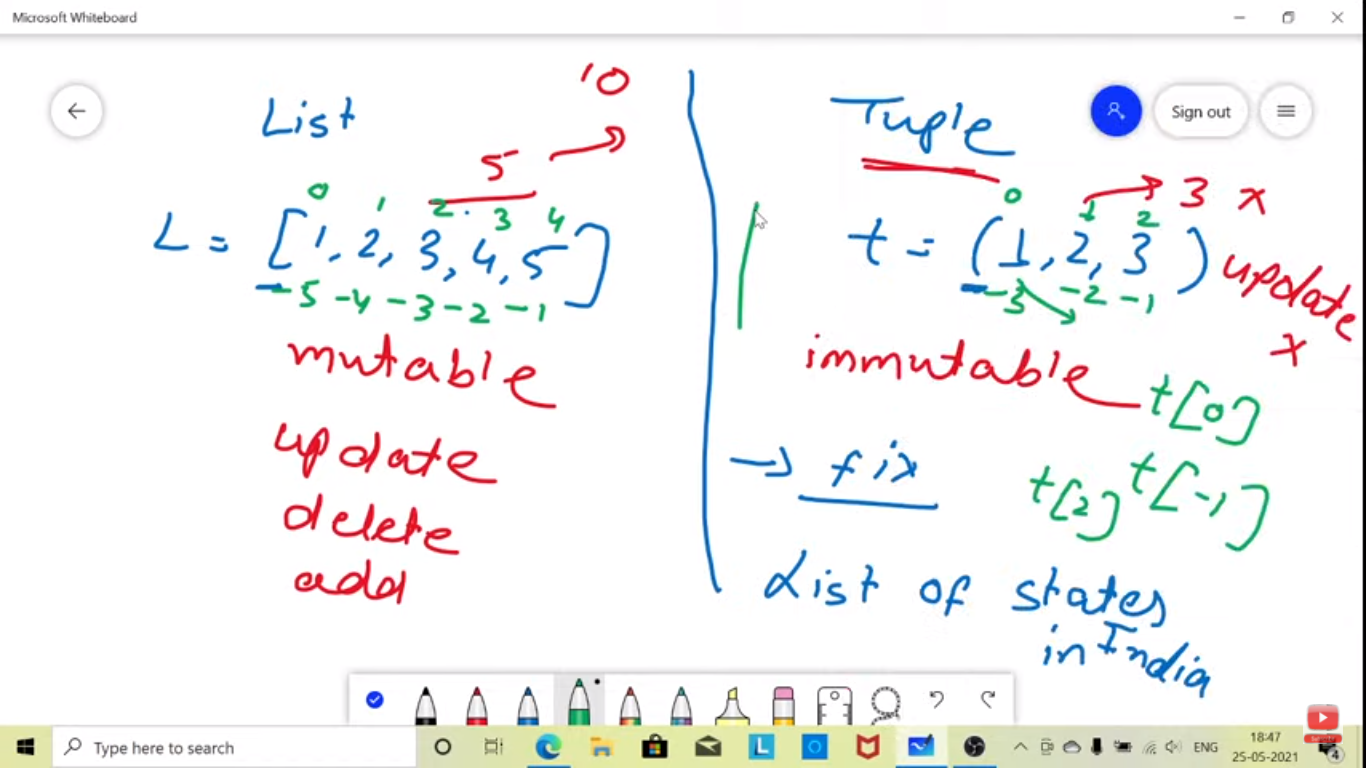 Microsoft Whiteboard
Sign out
List
10
5
0 1 2 3 4
L = [1, 2, 3, 4, 5]
-5 -4 -3 -2 -1
mutable
update
delete
add
Tuple
3 x
0 1 2
t = (1, 2, 3)
-3 -2 -1
update
x
immutable
t[0]
→ fix
t[2] t[-1]
List of states
in India
Type here to search
ENG
18:47
25-05-2021
4